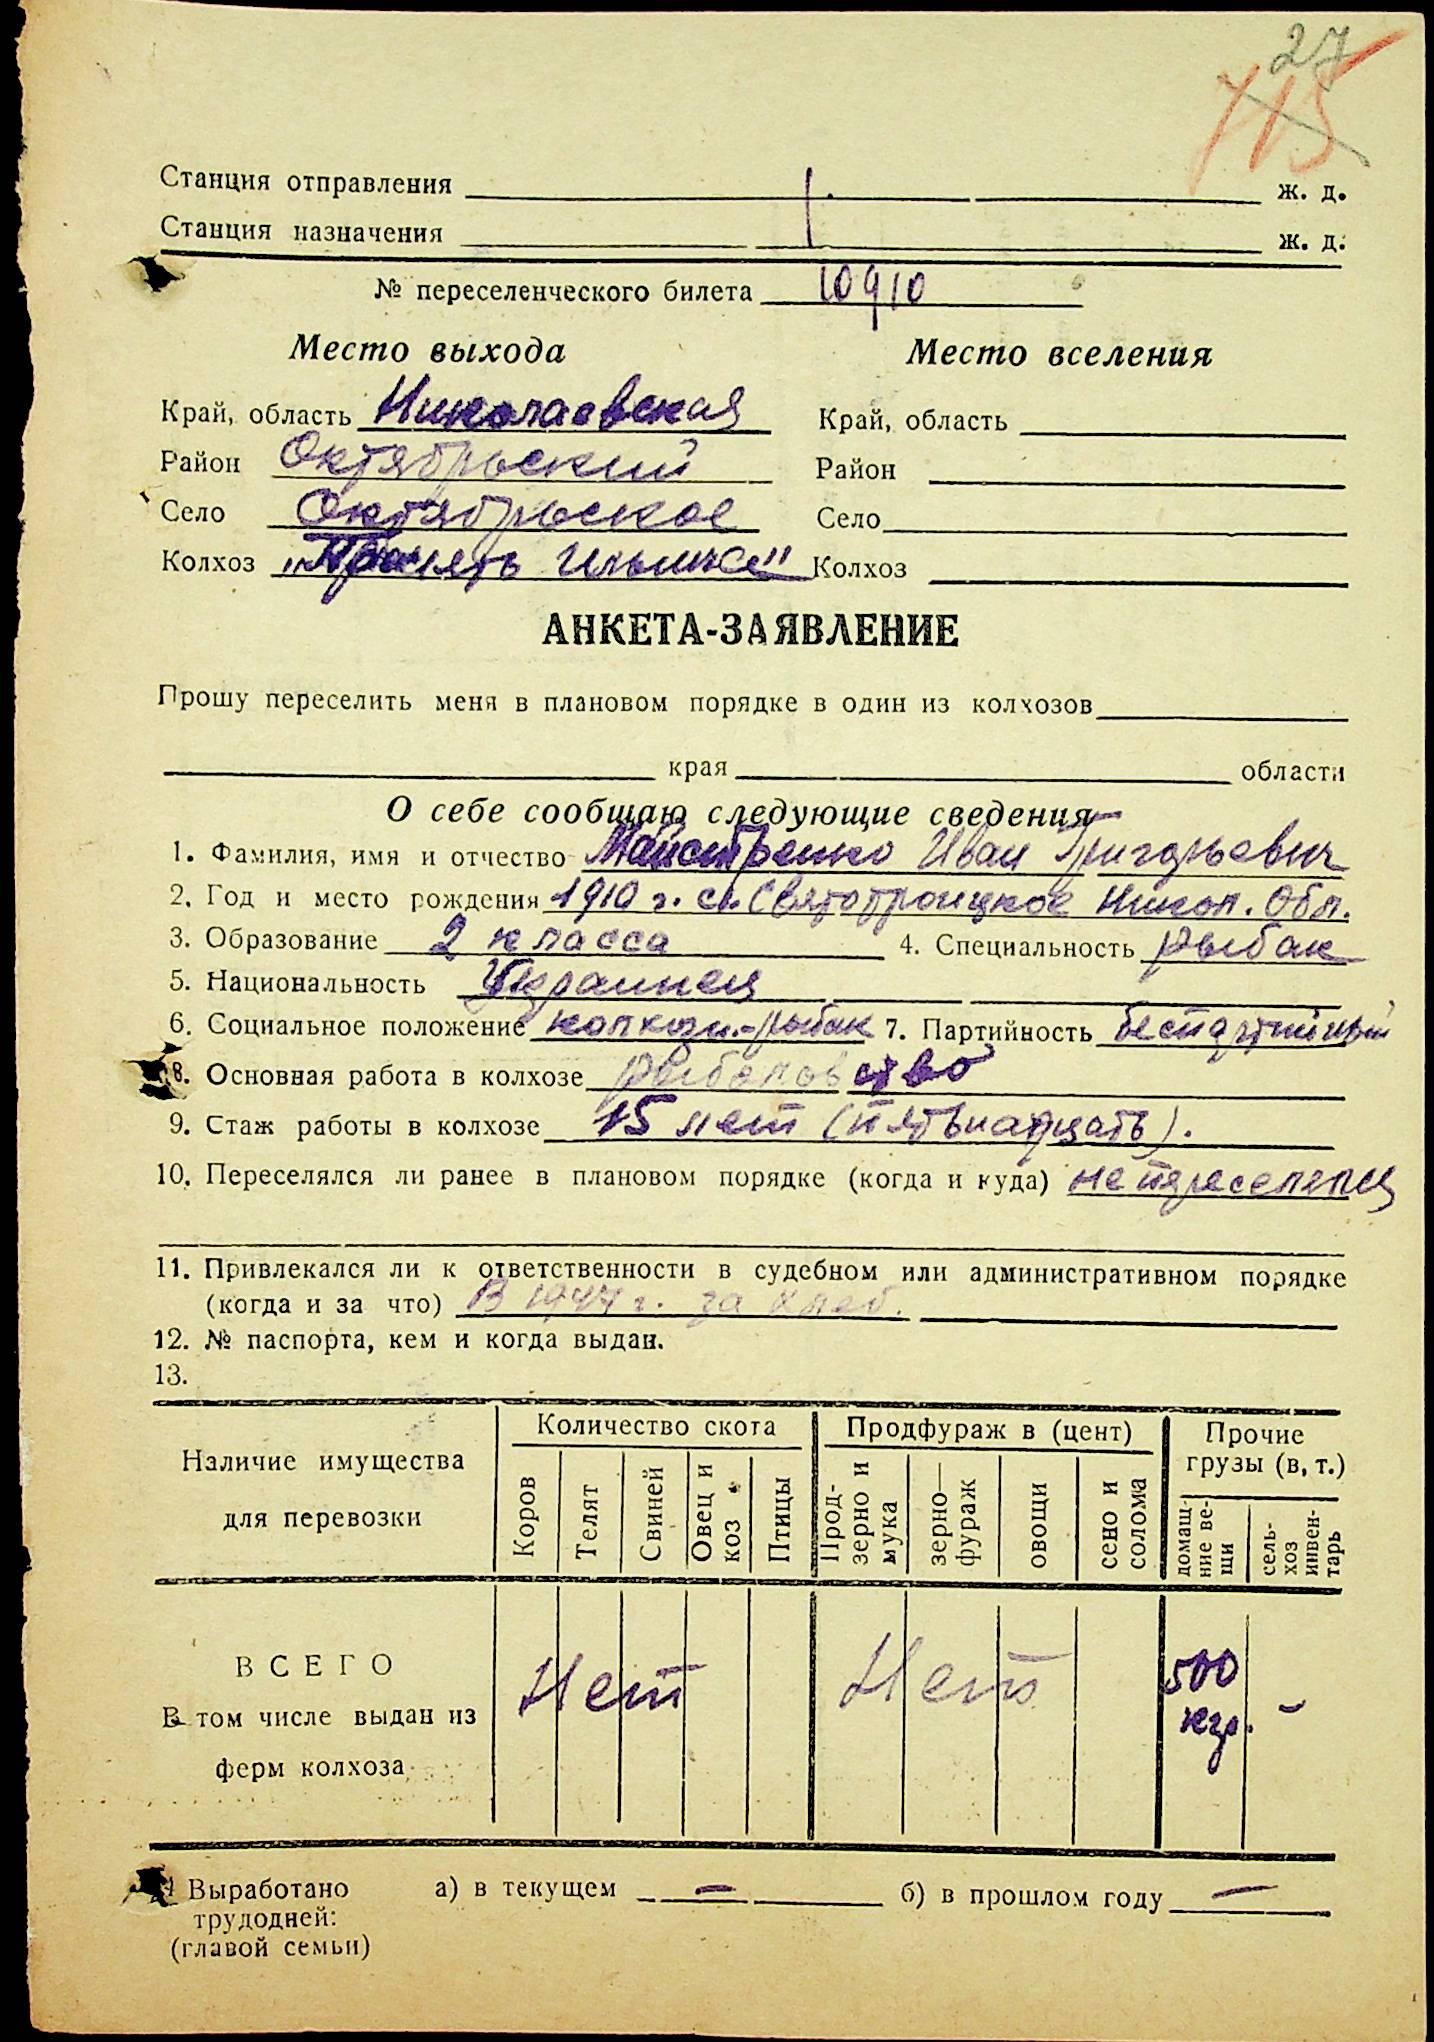 27
715
Станция отправления ж. д.
Станция назначения ж. д.
№ переселенческого билета 10910
Место выхода Место вселения
Край, область Николаевская Край, область
Район Октябрьский Район
Село Октябрьское Село
Колхоз „Память Ильича" Колхоз
АНКЕТА-ЗАЯВЛЕНИЕ
Прошу переселить меня в плановом порядке в один из колхозов
края области
О себе сообщаю следующие сведения
1. Фамилия, имя и отчество Майстренко Иван Григорьевич
2. Год и место рождения 1910 г. с. Святотроицкое Никол. Обл.
3. Образование 2 класса 4. Специальность рыбак
5. Национальность Украинец
6. Социальное положение колхозн.-рыбак 7. Партийность беспартийный
8. Основная работа в колхозе рыболовство
9. Стаж работы в колхозе 15 лет (пятьнатцать).
10. Переселялся ли ранее в плановом порядке (когда и куда) не переселялся
11. Привлекался ли к ответственности в судебном или административном порядке
(когда и за что) В 1947 г. за хлеб.
12. № паспорта, кем и когда выдан.
13.
Наличие имущества для перевозки
Количество скота Продфураж в (цент) Прочие грузы (в, т.)
Коров Телят Свиней Овец и коз Птицы Прод-зерно и мука зерно—фураж овощи сено и солома домащ-ние ве-щи сель-хоз инвен-тарь
ВСЕГО Нет Нет 500 кгр. –
В том числе выдан из
ферм колхоза
Выработано а) в текущем – б) в прошлом году –
трудодней:
(главой семьи)